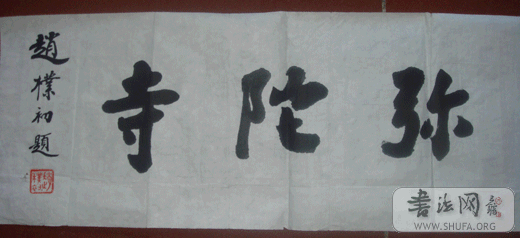 弥陀寺
趙樸初題
書法网
WWW.SHUFA.ORG